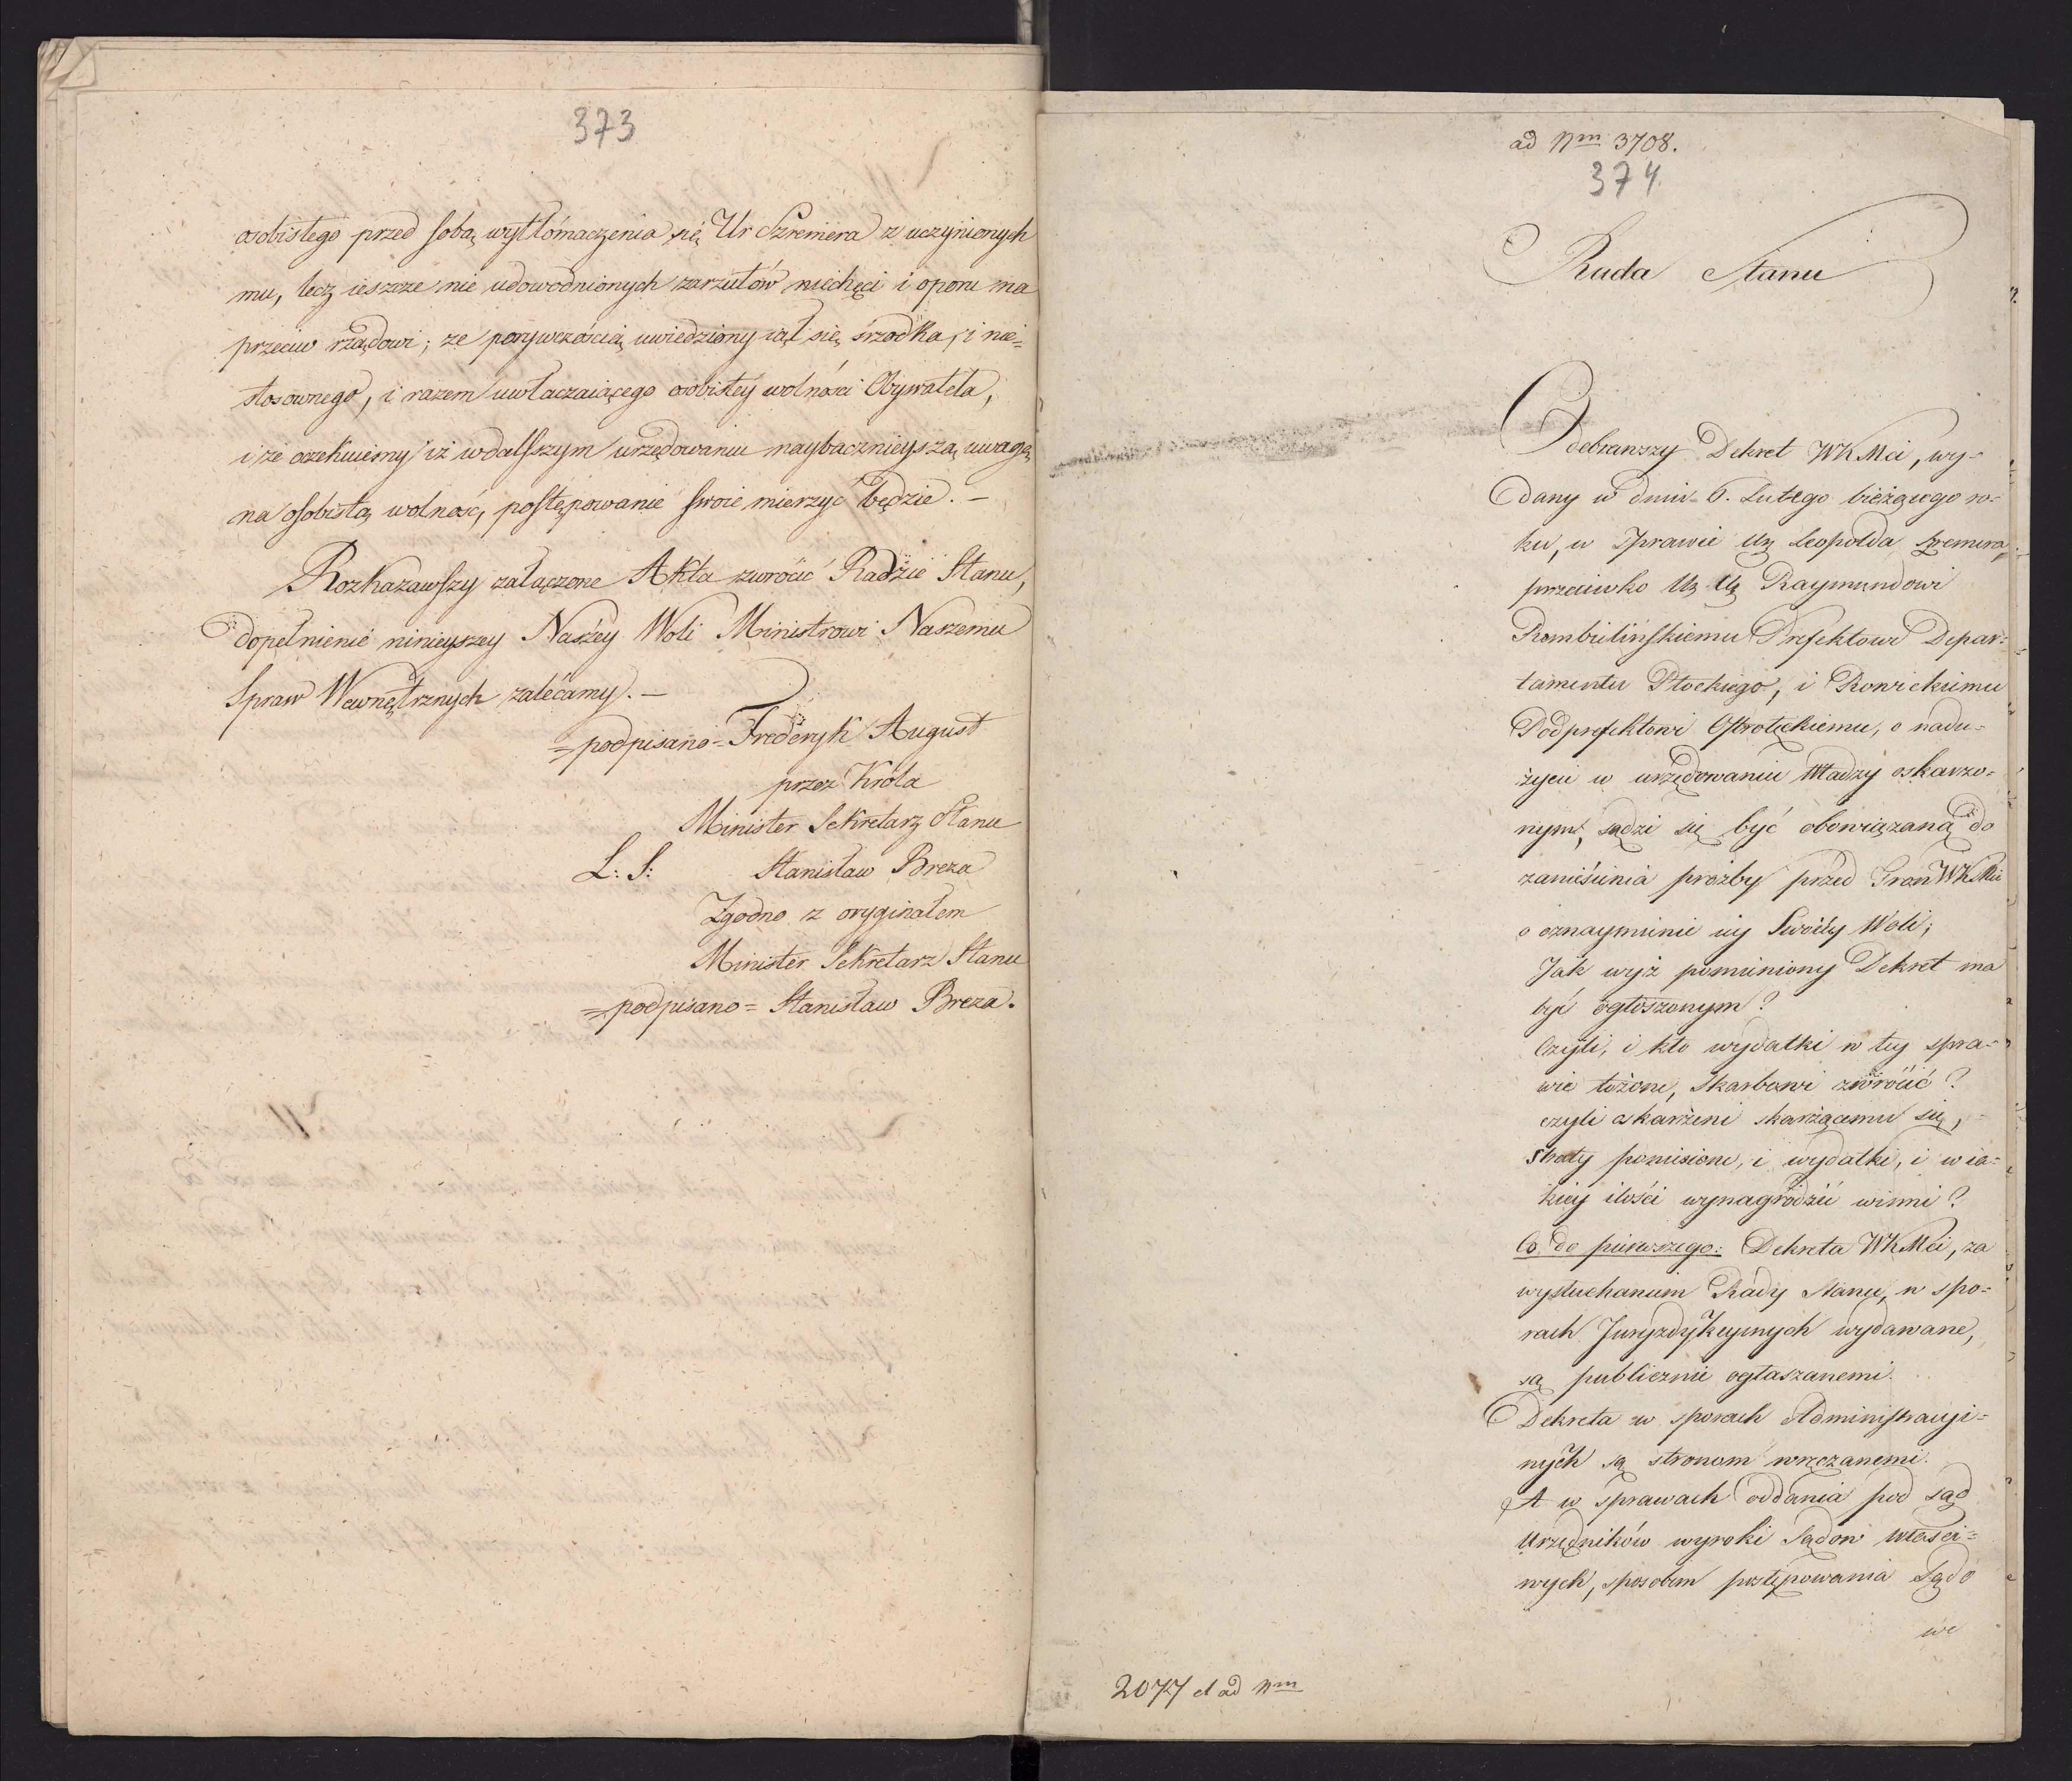 373
osobistego przed sobą wytłómaczenia się Ur Szremera z uczynionych
mu, lecz ieszcze nie udowodnionych zarzutów niechęci i oporu ma
przeciw rządowi; że porywczością uwiedziony iął się srzodka, i nie=
stosownego, i razem uwłaczaiącego osobistey wolności Obywatela,
i że oczekuiemy iż w dalszym urzędowaniu naybacznieyszą uwagą
na osobistą wolność, postępowanie swoie mierzyć będzie. —
Rozkazawszy załączone Akta zwrócić Radzie Stanu,
dopełnienie ninieyszey Naszey Woli Ministrowi Naszemu
Spraw Wewnętrznych zalecamy. —
=podpisano= Frederyk August
przez Króla
Minister Sekretarz Stanu
L: S: Stanisław Breza
Zgodno z oryginałem
Minister Sekretarz Stanu
=podpisano= Stanisław Breza.
ad Nm 3708.
374
Rada Stanu
Odebrawszy Dekret WKMci, wy-
dany w dniu 6. Lutego bieżącego ro-
ku, w Sprawie Ur Leopolda Szremera,
przeciwko Ur Ur Raymundowi
Rembielińskiemu Prefektowi Depar-
tamentu Płockiego, i Rowickiemu
Podprefektowi Ostrołęckiemu, o nadu-
życiu w urzędowaniu Władzy oskarżo-
nym, sądzi się być obowiązaną do
zaniesienia prożby przed Tron WKMci
o oznaymienie iey Swoiey Woli;
Jak wyż pomieniony Dekret ma
być ogłoszonym?
Czyli, i kto wydatki w tey spra-
wie łożone, Skarbowi zwrócić?
czyli oskarżeni skarżącemu się,
straty poniesione, i wydatki, i w ia-
kiey ilości wynagrodzić winni?
Co do pierwszego: Dekreta WKMci, za
wysłuchaniem Rady Stanu, w spo-
rach Juryzdykcyinych wydawane,
są publicznie ogłaszanemi.
Dekreta w sporach Administracyi-
nych są stronom wręczanemi.
A w sprawach oddania pod sąd
Urzędników wyroki Sądów właści-
wych, sposobem postępowania Sądo
we
2077 et ad Nm